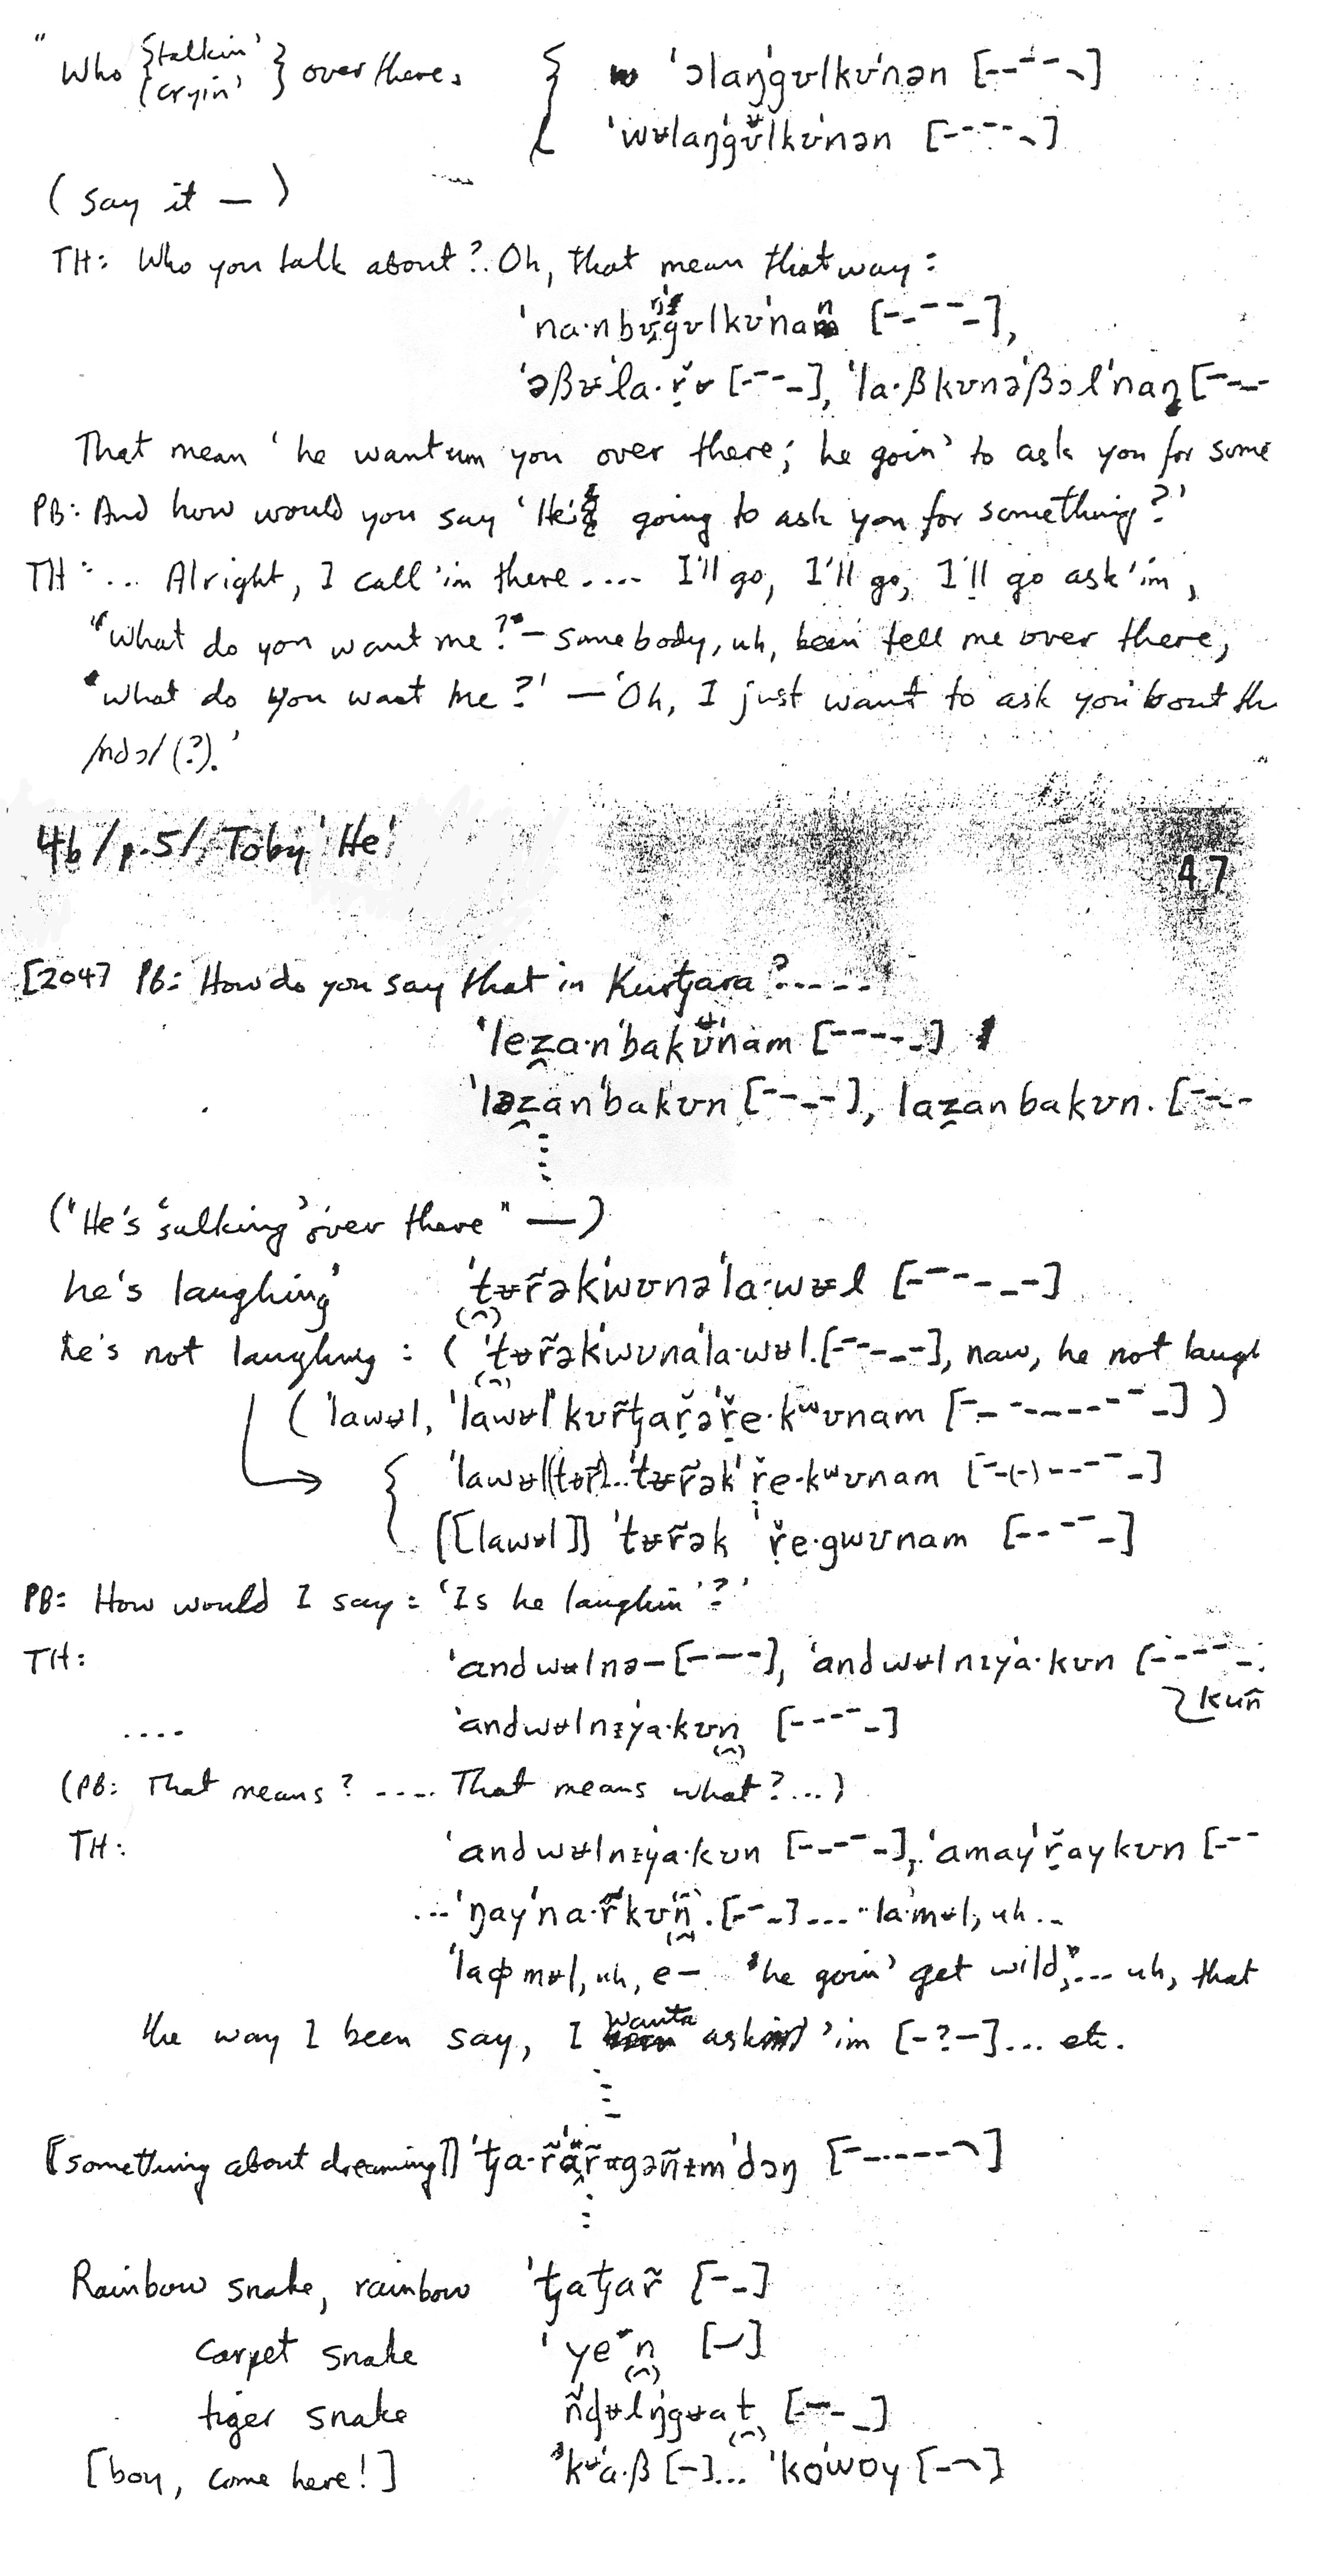 "Who {talkin' over there,
{cryin'}
{ 'ɔlaŋ'gʊlkʊ'nən [--‾--ˎ]
'wʉlaŋ'gʊ̌lkʊ'nən [-‾‾--ˎ]
(say it —)
TH: Who you talk about?. Oh, that mean that way:
'na·nbʊŋ'gʊlkʊ'nan [--‾‾-],
'əβʉ'la·ṛ̌ʊ [-‾‾-], 'la·βkʊnə'βɔl'naŋ [‾---
That mean 'he wantum you over there; he goin' to ask you for some
PB: And how would you say 'He's going to ask you for something?'
TH: ... Alright, I call 'im there .... I'll go, I'll go, I'll go ask 'im,
"What do you want me?" – somebody, uh, been tell me over there,
"What do you want me?' – 'Oh, I just want to ask you 'bout th
/ndɔ/ (?).'
4b/p.5/, Toby 'He'
47
[204] PB: How do you say that in Kurtjara?.....
'leẓa·n'bakʊ̌'nam [-----]
'ləẓan'bakʊn [----], laẓanbakʊn. [---
("He's 'sulking' over there" —)
he's laughing' 'tʉr̃ək'wʊnə'la·wʉl [-‾---‾]
he's not laughing : ( 'tʉr̃ək'wʊna'la·wʉl. [-‾---‾], naw, he not laugh
( 'lawʉl, 'lawʉl'kʊr̃tjaṛ̌ə'ṛ̌e·kʷʊnam [‾- -------‾‾-] )
{ 'lawʉl((tʉr̃)... 'tʉr̃ək'ṛ̌e·kʷʊnam [‾-(-)---‾‾-]
[[lawʉl]] 'tʉr̃ək 'ṛ̌e·gwʊnam [--‾‾-]
PB: How would I say: 'Is he laughin'?'
TH: 'andwʉlnə– [----], 'andwʉlnɪ'ya·kʊn [-----
kuñ
.... 'andwʉlnɪ'ya·kʊn [-----]
(PB: That means? .... That means what?...)
TH: 'andwʉlnɪ'ya·kʊn [-----], 'amay'ṛ̌aykʊn [---
...'ŋay'na·r̃kʊn. [-‾-].... ..la'mʉl, uh..
'laɸmʉl, uh, e– "he goin' get wild,"... uh, that
the way I been say, I wanta ask 'im [-?-]... etc.
[[something about dreaming]] 'tja·r̃'ar̃ʌgəñɪm'dɔŋ [‾-----ˎ]
Rainbow snake, rainbow 'tjatjar̃ [‾-]
carpet snake 'yeʳn [-ˊ]
tiger snake ñḍʉlŋgʉat [-‾--]
[boy, come here!] 'kʉ'a·β [-]... 'ko'woy [-ˎ]